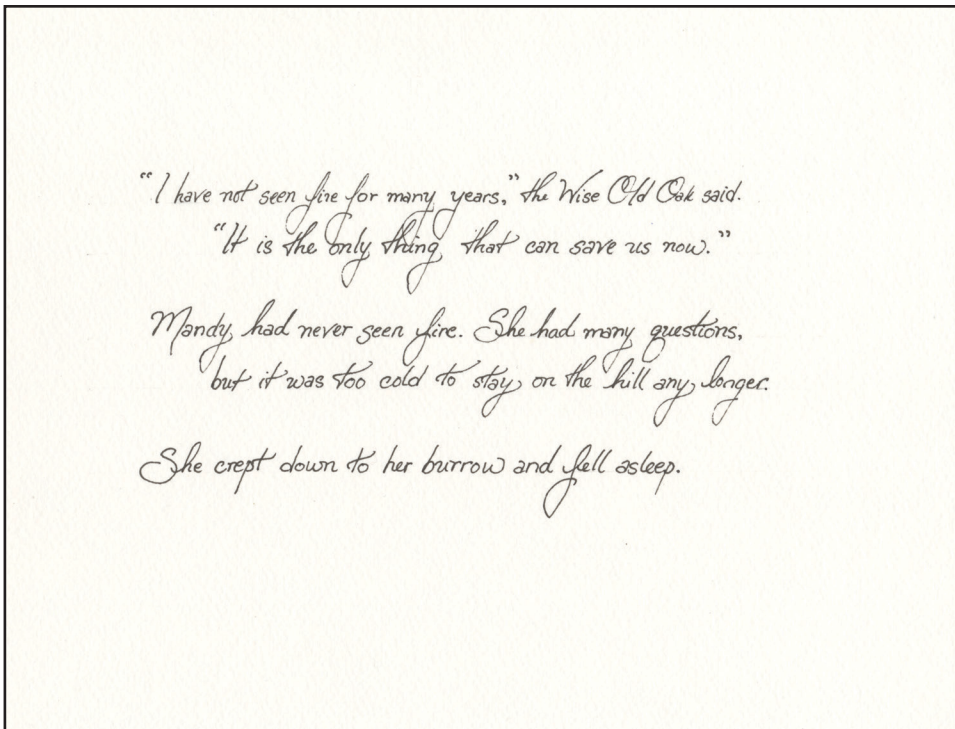 “I have not seen fire for many years,” the Wise Old Oak said.
“It is the only thing that can save us now.”
Mandy had never seen fire. She had many questions,
but it was too cold to stay on the hill any longer.
She crept down to her burrow and fell asleep.